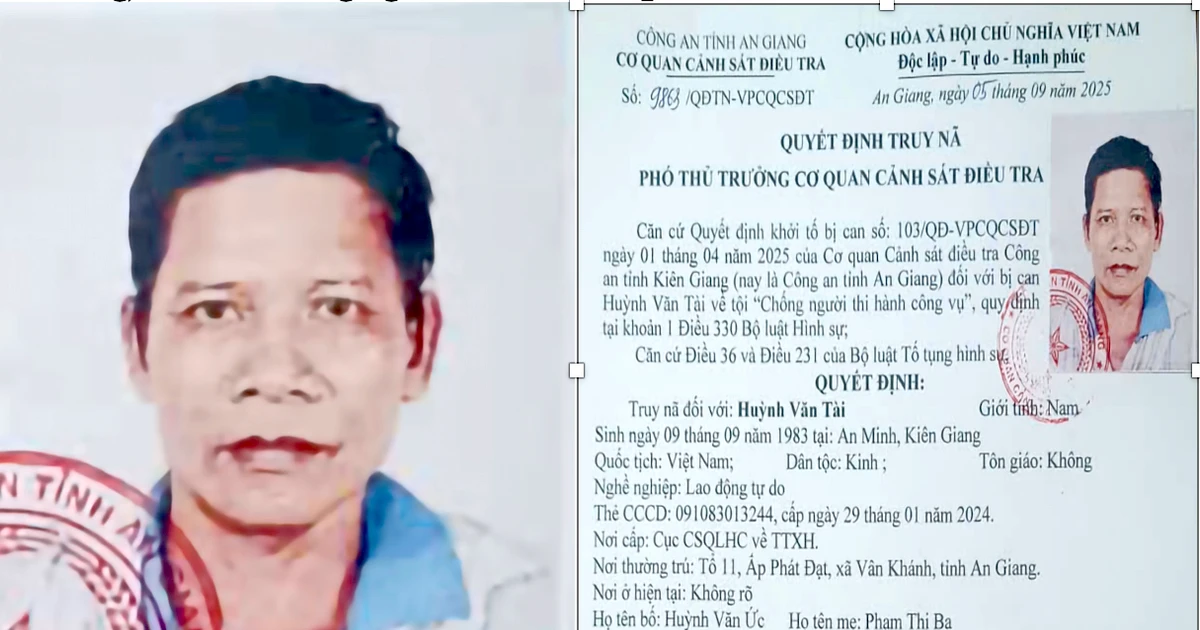 CÔNG AN TỈNH AN GIANG
CƠ QUAN CẢNH SÁT ĐIỀU TRA
Số: 9863 /QĐTN-VPCQCSĐT
CỘNG HÒA XÃ HỘI CHỦ NGHĨA VIỆT NAM
Độc lập - Tự do - Hạnh phúc
An Giang, ngày 05 tháng 09 năm 2025
QUYẾT ĐỊNH TRUY NÃ
PHÓ THỦ TRƯỞNG CƠ QUAN CẢNH SÁT ĐIỀU TRA
Căn cứ Quyết định khởi tố bị can số: 103/QĐ-VPCQCSĐT
ngày 01 tháng 04 năm 2025 của Cơ quan Cảnh sát điều tra Công
an tỉnh Kiên Giang (nay là Công an tỉnh An Giang) đối với bị can
Huỳnh Văn Tài về tội “Chống người thi hành công vụ”, quy định
tại khoản 1 Điều 330 Bộ luật Hình sự;
Căn cứ Điều 36 và Điều 231 của Bộ luật Tố tụng hình sự,
QUYẾT ĐỊNH:
Truy nã đối với: Huỳnh Văn Tài Giới tính: Nam
Sinh ngày 09 tháng 09 năm 1983 tại: An Minh, Kiên Giang
Quốc tịch: Việt Nam; Dân tộc: Kinh ; Tôn giáo: Không
Nghề nghiệp: Lao động tự do
Thẻ CCCD: 091083013244, cấp ngày 29 tháng 01 năm 2024.
Nơi cấp: Cục CSQLHC về TTXH.
Nơi thường trú: Tổ 11, Ấp Phát Đạt, xã Vân Khánh, tỉnh An Giang.
Nơi ở hiện tại: Không rõ
Họ tên bố: Huỳnh Văn Ức Họ tên mẹ: Phạm Thị Ba
N TỈNH AN